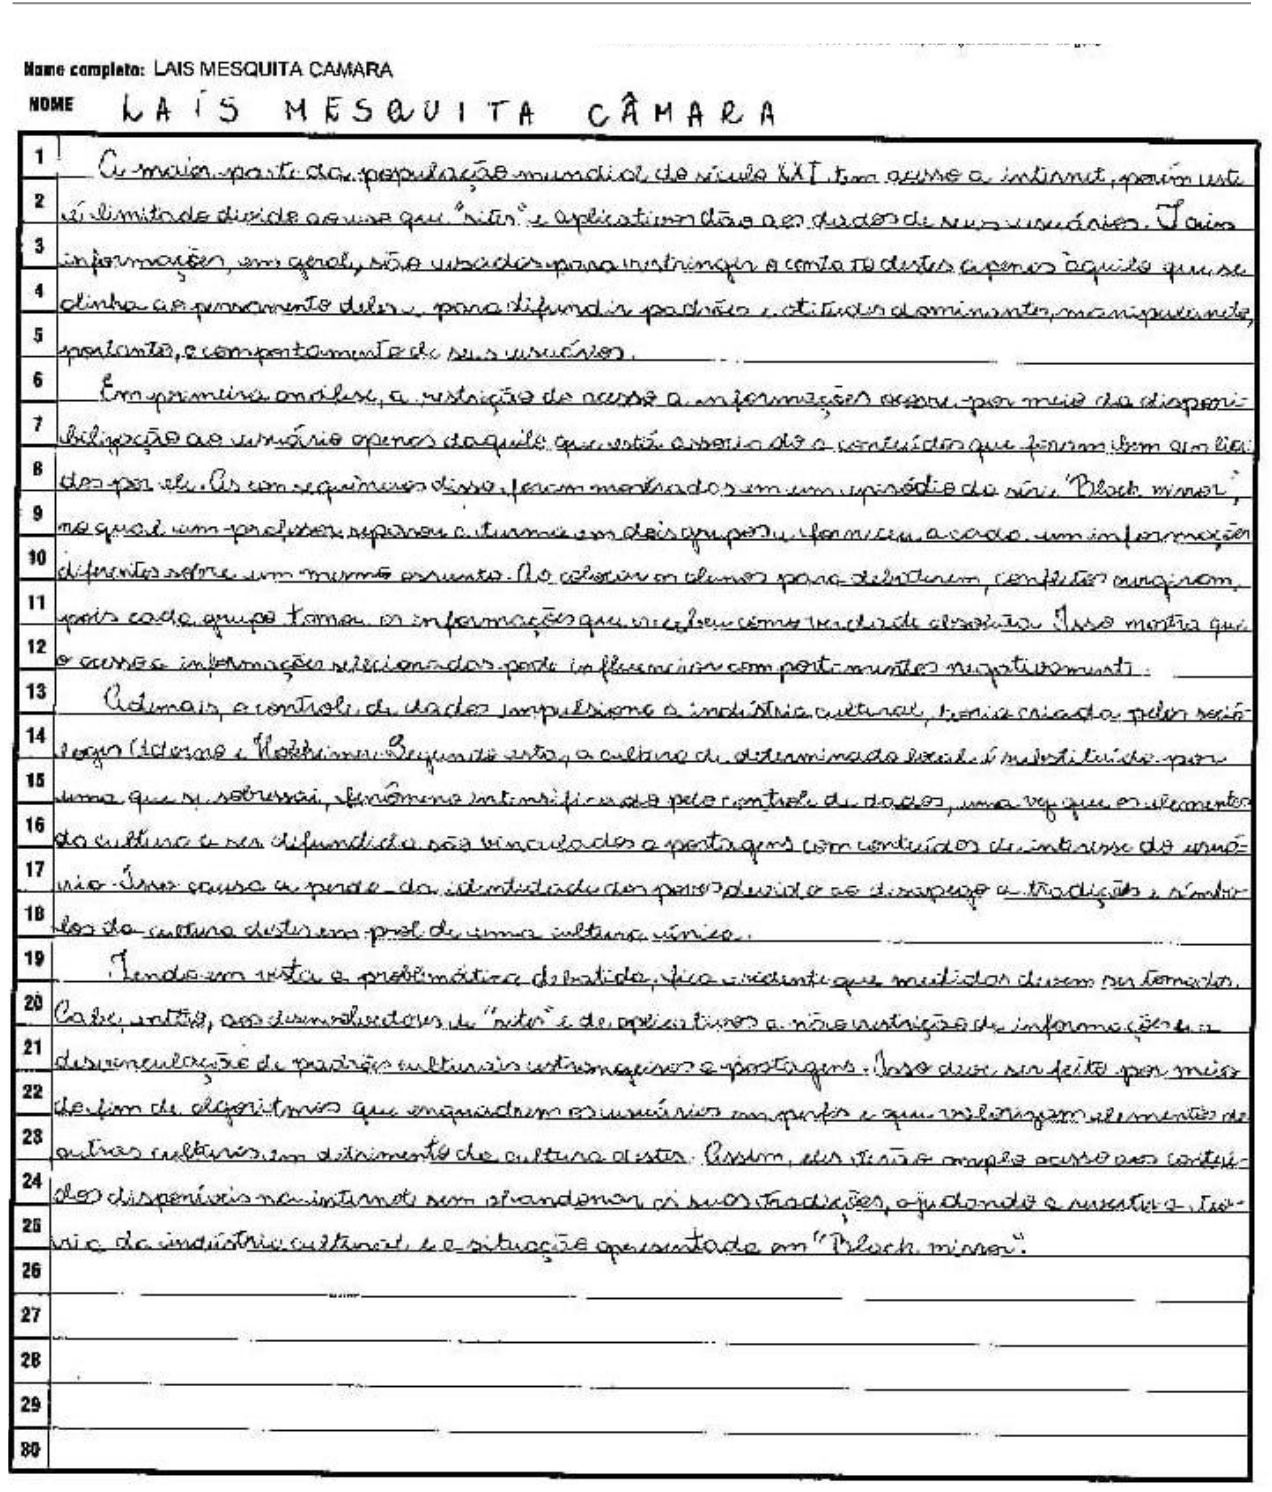 Nome completo: LAIS MESQUITA CAMARA
NOME LAÍS MESQUITA CÂMARA
1 A maior parte da população mundial do século XXI tem acesso a internet, porém este
2 é limitado divido ao uso que "sites" e aplicativos dão aos dados de seus usuários. Tais
3 informações, em geral, são usadas para restringir o contato destes apenas àquilo que se
4 alinha ao pensamento deles e para difundir padrões e atitudes dominantes, manipulando,
5 portanto, o comportamento de seus usuários.
6 Em primeira análise, a restrição do acesso a informações ocorre por meio da disponi-
7 bilização ao usuário apenas daquilo que está associado a conteúdos que foram bem avalia-
8 dos por ele. As consequências disso foram mostradas em um episódio da série "Black mirror",
9 no qual um professor separou a turma em dois grupos e forneceu a cada um informações
10 diferentes sobre um mesmo assunto. Ao colocar os alunos para debaterem, conflitos surgiram,
11 pois cada grupo tomou as informações que recebeu como verdade absoluta. Isso mostra que
12 o acesso a informações selecionadas pode influenciar comportamentos negativamente.
13 Ademais, o controle de dados impulsiona a indústria cultural, teoria criada pelos soció-
14 logos Adorno e Hokheimer. Segundo esta, a cultura de determinado local é substituída por
15 uma que se sobressai, fenômeno intensificado pelo controle de dados, uma vez que os elementos
16 da cultura a ser difundida são vinculados a postagens com conteúdos de interesse do usuá-
17 rio. Isso causa a perda da identidade dos povos devido ao desapego a tradições e símbo-
18 los da cultura destes em prol de uma cultura única.
19 Tendo em vista a problemática debatida, fica evidente que medidas devem ser tomadas.
20 Cabe, então, aos desenvolvedores de "sites" e de aplicativos a não restrição de informações e a
21 desvinculação de padrões culturais estrangeiros a postagens. Isso deve ser feito por meio
22 do fim de algoritmos que enquadrem os usuários em perfis e que valorizam elementos de
23 outras culturas em detrimento da cultura destes. Assim, eles terão amplo acesso aos conteú-
24 dos disponíveis na internet sem abandonar as suas tradições, ajudando a reverter a teo-
25 ria da indústria cultural e a situação apresentada em "Black mirror".
26
27
28
29
30